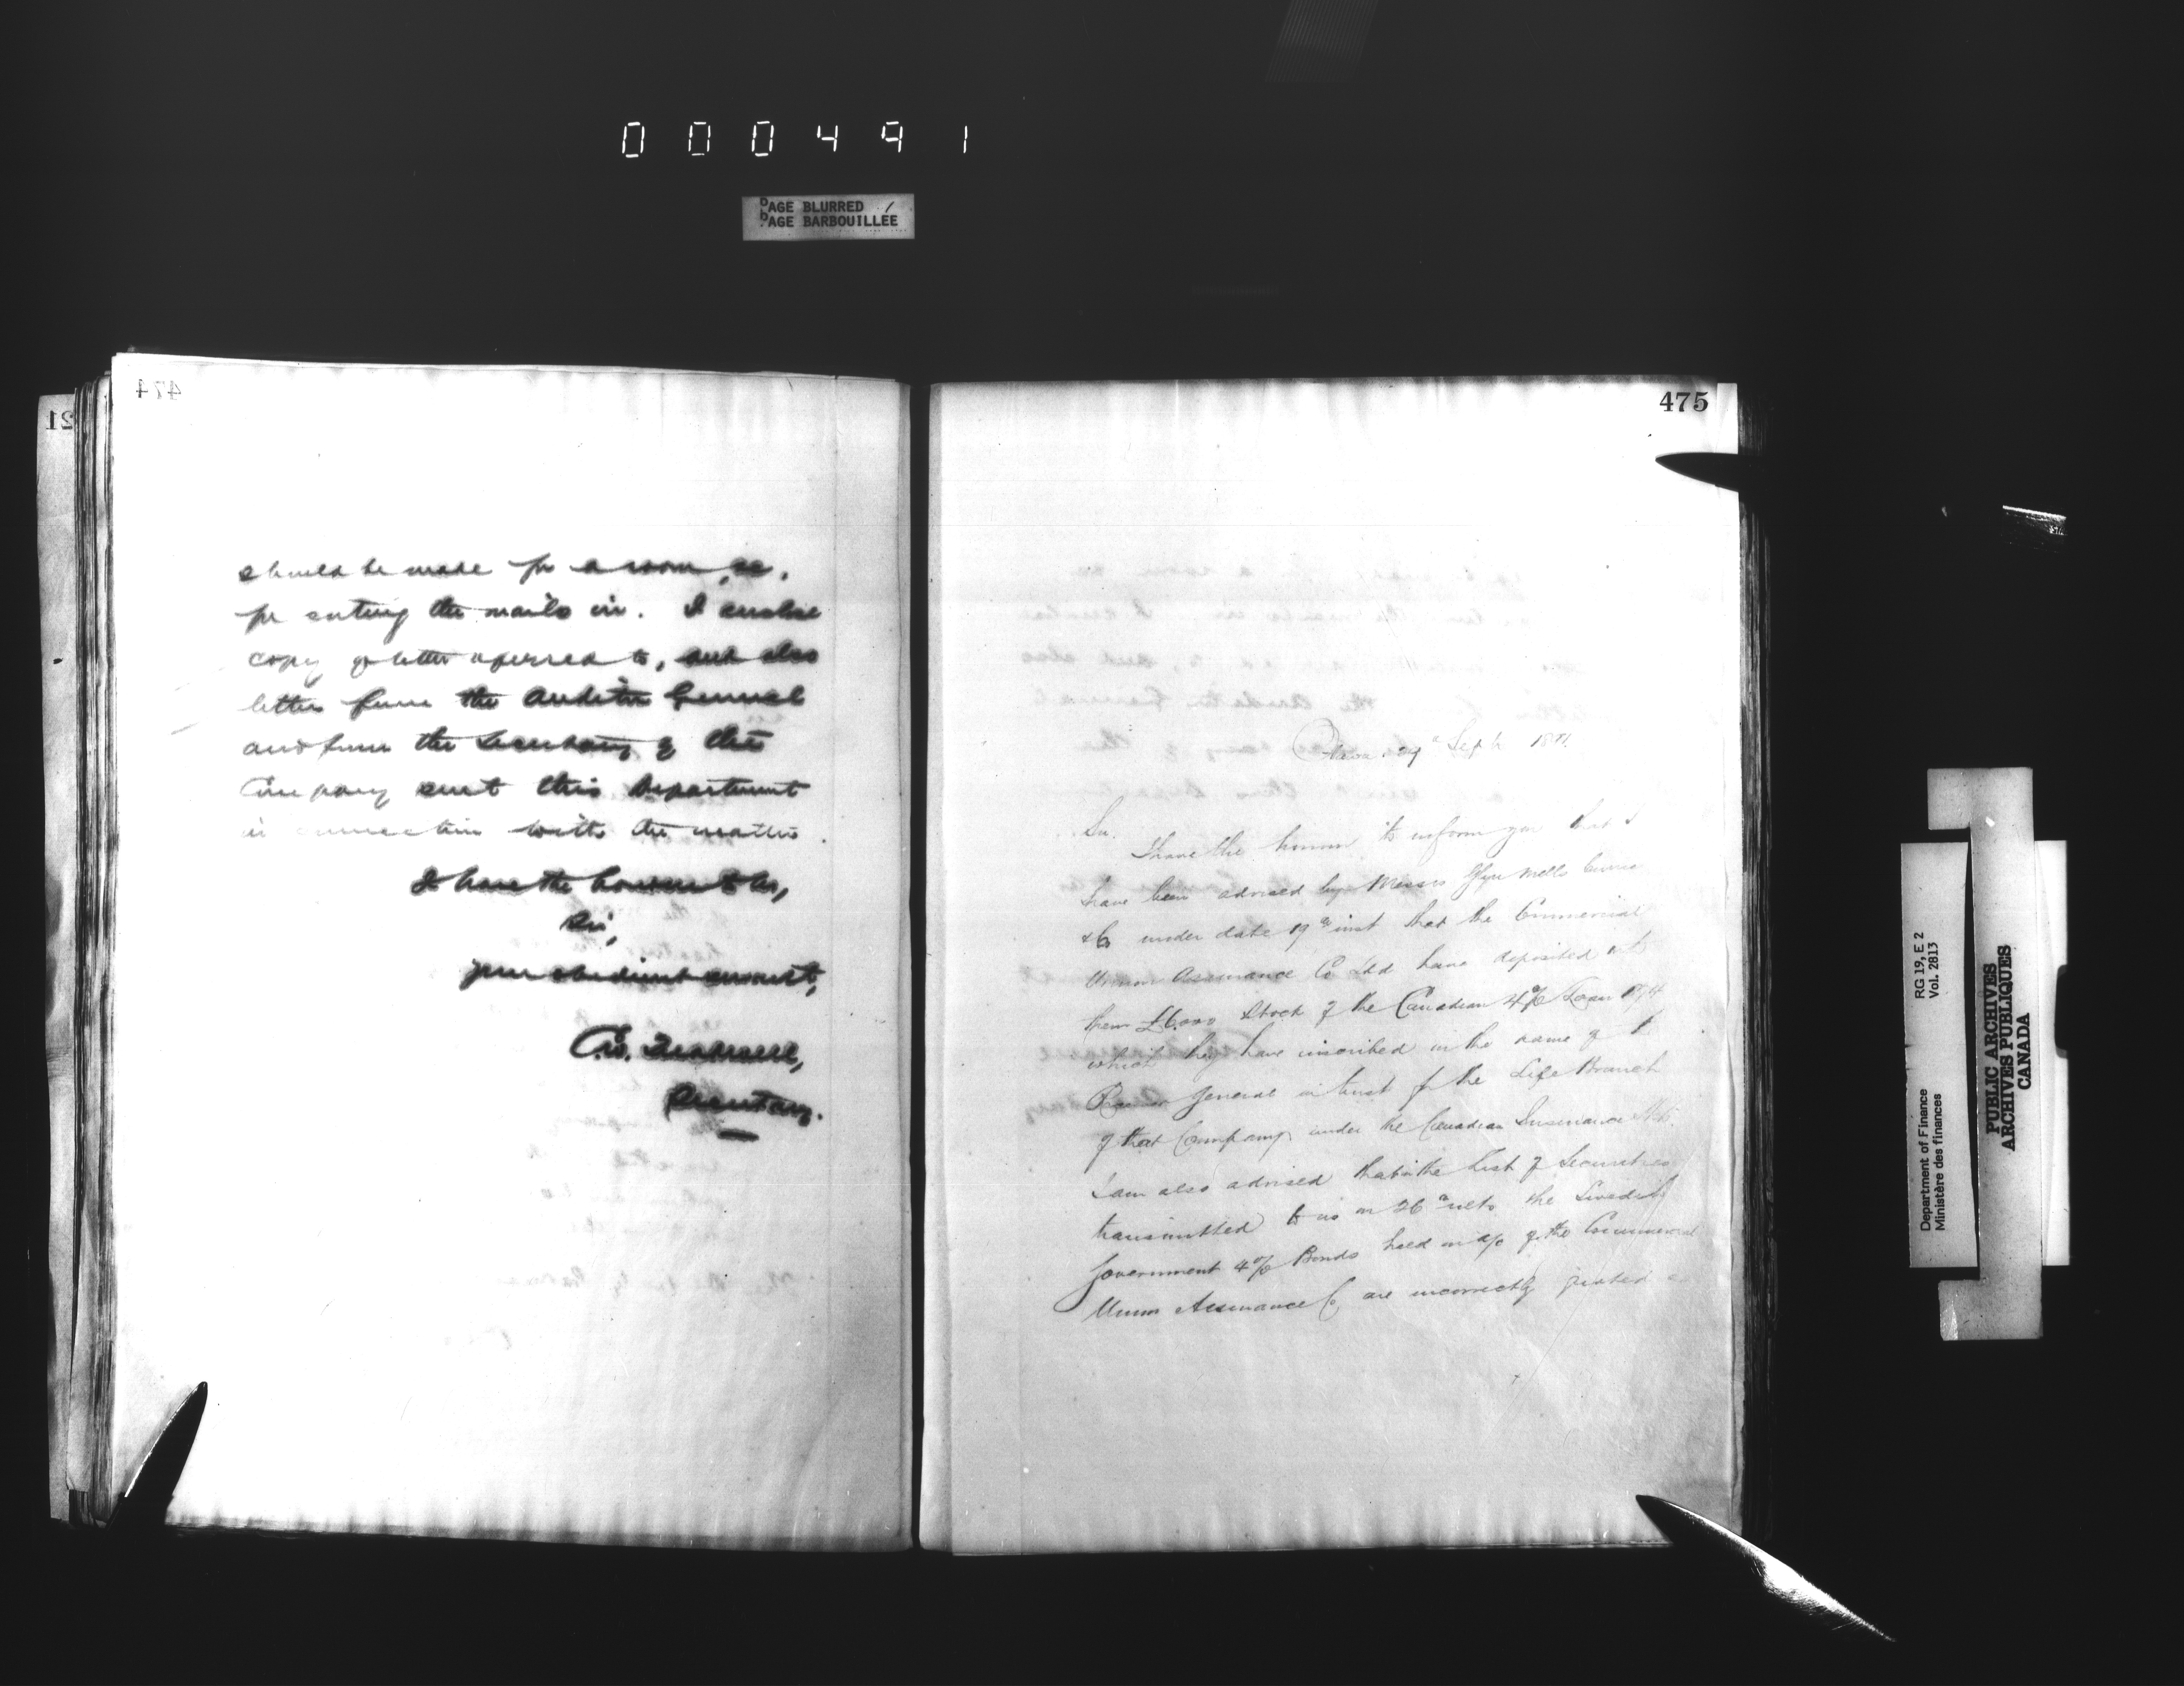 000491
PAGE BLURRED
PAGE BARBOUILLÉE
474
21
should be made for a room, &c.
for sorting the mails in. I enclose
copy of letter referred to, and also
letters from the Auditor General
and from the Secretary of the
Company sent this Department
in connection with the matter.
I have the honour to be,
Sir,
Your obedient servant,
Secretary.
475
Ottawa 29th Sept 18
Sir.
I have the honour to inform you that I
have been advised by Messrs Glyn Mills Currie
& Co under date 17th inst that the Commercial
Union Assurance Co Ltd have deposited with
them £6,000 Stock of the Canadian 4% Loan 1874
which they have inscribed in the name of
Receiver General in trust for the Life Branch
of that Company under the Canadian Insurance Act.
I am also advised that in the List of Securities
transmitted to us on 26th ulto the Swedish
Government 4% Bonds held on a/c of the Commercial
Union Assurance Co are incorrectly quoted as
Department of Finance
Ministère des finances
RG 19, E 2
Vol. 2813
PUBLIC ARCHIVES
ARCHIVES PUBLIQUES
CANADA